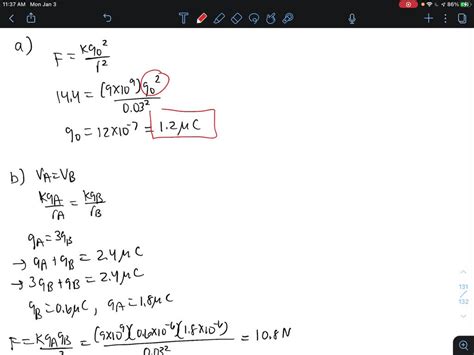 11:37 AM Mon Jan 3
86%
a)
F = kq₀² / r²
14.4 = (9×10⁹) q₀² / 0.03²
q₀ = 12×10⁻⁷ = 1.2 μC
b) VA = VB
kqA / rA = kqB / rB
qA = 3qB
→ qA + qB = 2.4 μC
→ 3qB + qB = 2.4 μC
qB = 0.6 μC, qA = 1.8 μC
131
132
F = kqAqB / 2 = (9×10⁹)(0.6×10⁻⁶)(1.8×10⁻⁶) / 0.03² = 10.8 N